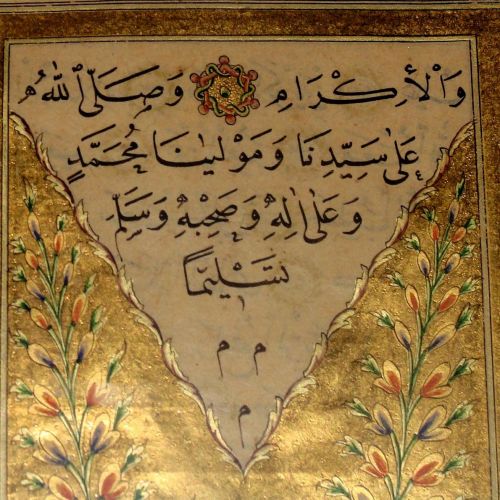 وَالْاِكْرَامِ وَصَلَّى اللّٰهُ
عَلٰى سَيِّدِنَا وَمَوْلٰينَا مُحَمَّدٍ
وَعَلٰى اٰلِهٖ وَصَحْبِهٖ وَسَلِّمْ
تَسْلِيْمًا
م م
م